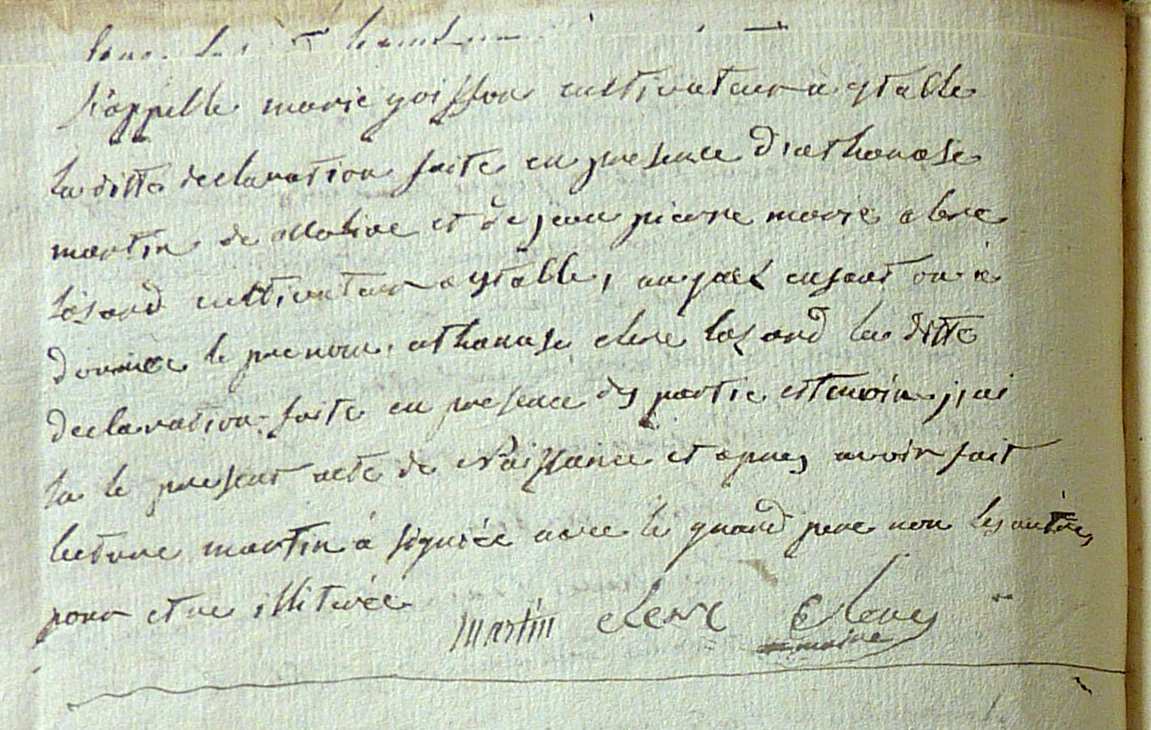 s'appelle marie poisson cultivateur a ytable
la ditte declaration faite en presence d'athanase
martin de et de jean pierre marie clerc
losand cultivateur a ytable, auquel enfant on à
donnée le prenom athanase clerc losand la ditte
declaration faite en presence des partie et temoin j'ai
lu le present acte de Naissance et apres avoir fait
lecture martin à signiée avec le grand pere non les autres
pour etre illiterée
martin clerc Clerc
maire